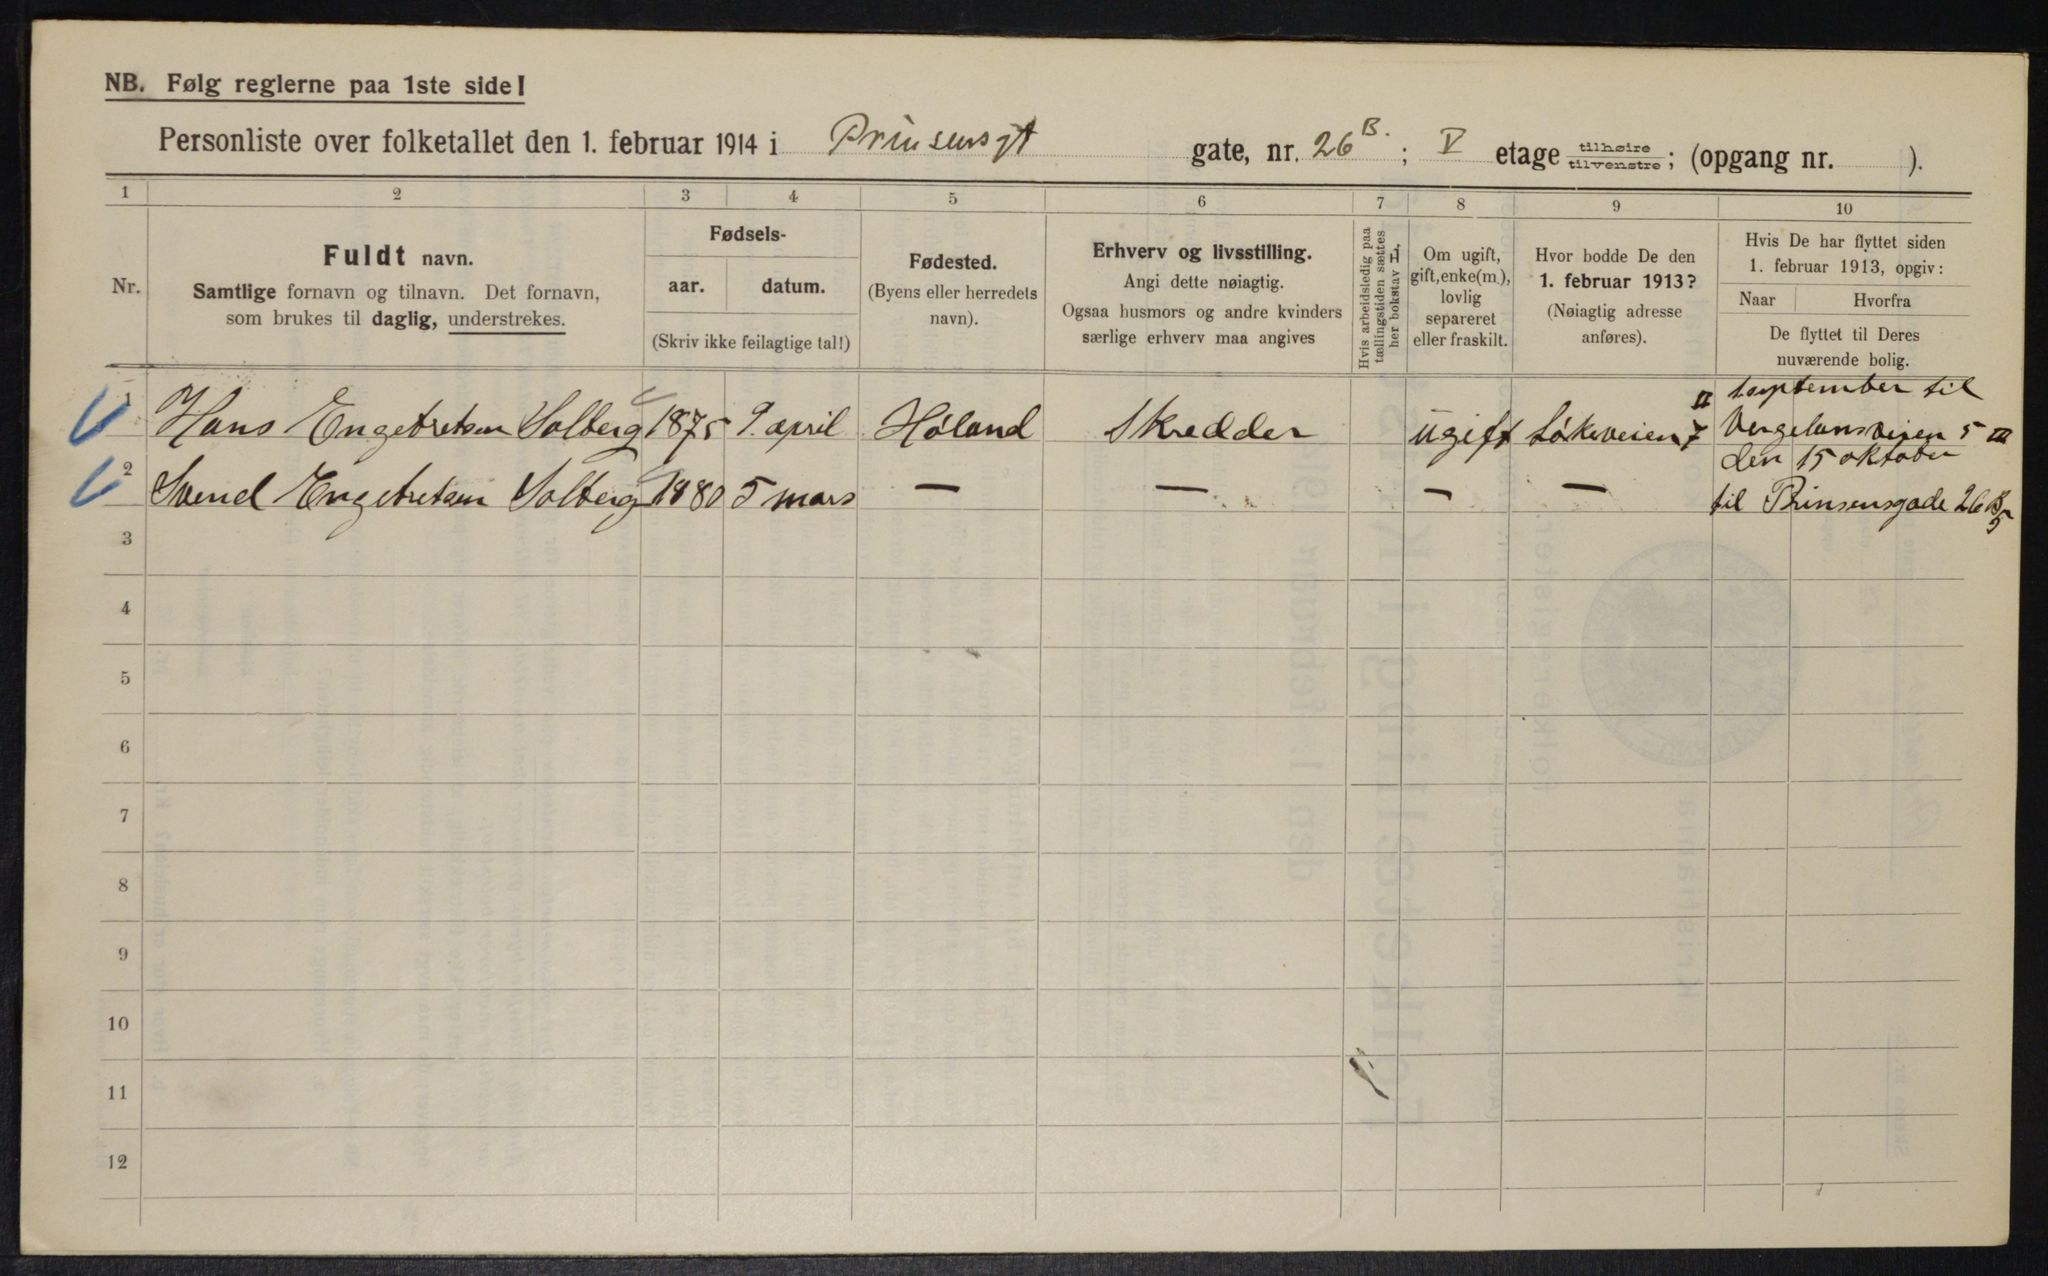 NB. Følg reglerne paa 1ste side!
Personliste over folketallet den 1. februar 1914 i Prinsensgt gate, nr. 26 B. ; V etage tilhøire tilvenstre ; (opgang nr. ).
1 2 3 4 5 6 7 8 9 10
Nr.
Fuldt navn.
Samtlige fornavn og tilnavn. Det fornavn,
som brukes til daglig, understrekes.
Fødsels-
aar. datum.
(Skriv ikke feilagtige tal!)
Fødested.
(Byens eller herredets
navn).
Erhverv og livsstilling.
Angi dette nøiagtig.
Ogsaa husmors og andre kvinders
særlige erhverv maa angives
Hvis arbeidsledig paa
tællingstiden sættes
her bokstav L.
Om ugift,
gift, enke(m.),
lovlig
separeret
eller fraskilt.
Hvor bodde De den
1. februar 1913?
(Nøiagtig adresse
anføres).
Hvis De har flyttet siden
1. februar 1913, opgiv:
Naar Hvorfra
De flyttet til Deres
nuværende bolig.
1 Hans Engebretsen Solberg 1875 9. april Høland Skredder ugift Løkeveien 7 II 1 september til
Vergelansveien 5 III
den 15 oktober
2 Svend Engebretsen Solberg 1880 5 mars — — — — til Prinsensgade 26 B 5
3
4
5
6
7
8
9
10
11
12